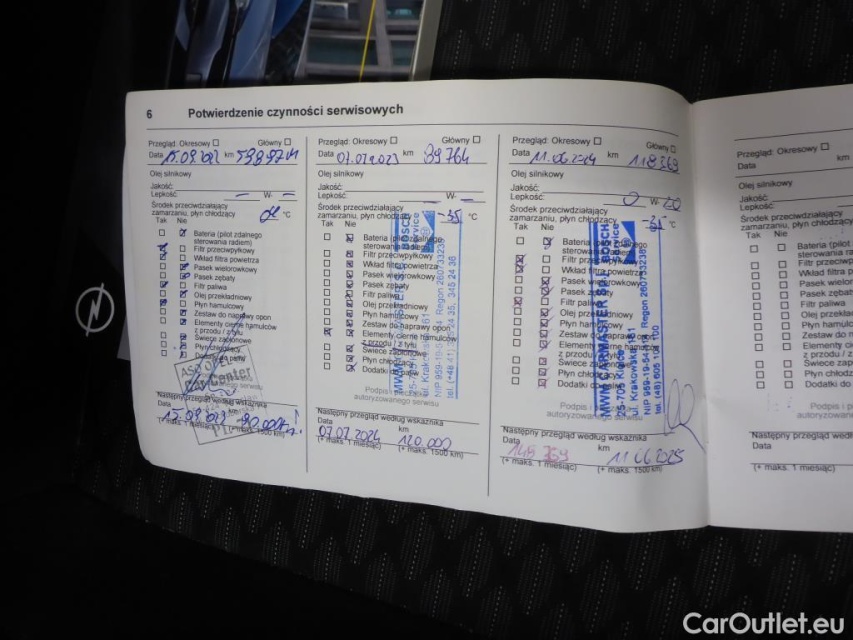 6 Potwierdzenie czynności serwisowych
Przegląd: Okresowy Główny
Data 15.09.022 km
Olej silnikowy
Jakość:
Lepkość: – W- –
Środek przeciwdziałający
zamarzaniu, płyn chłodzący °C
Tak Nie
Bateria (pilot zdalnego
sterowania radiem)
Filtr przeciwpyłkowy
Wkład filtra powietrza
Pasek wielorowkowy
Pasek zębaty
Filtr paliwa
Olej przekładniowy
Płyn hamulcowy
Zestaw do naprawy opon
Elementy cierne hamulców
z przodu / z tyłu
Świece zapłonowe
Płyn chłodzący
Następny przegląd według wskaźnika
15.09.023
(+ maks. 1 miesiąc) (+ maks. 1500 km)
Przegląd: Okresowy Główny
Data 07.07.2023 km 89764
Olej silnikowy
Jakość:
Lepkość: – W- –
Środek przeciwdziałający
zamarzaniu, płyn chłodzący -35 °C
Tak Nie
Bateria (pilot zdalnego
sterowania radiem)
Filtr przeciwpyłkowy
Wkład filtra powietrza
Pasek wielorowkowy
Pasek zębaty
Filtr paliwa
Olej przekładniowy
Płyn hamulcowy
Zestaw do naprawy opon
Elementy cierne hamulców
z przodu / z tyłu
Świece zapłonowe
Płyn chłodzący
Dodatki do paliw
Podpis i
autoryzowanego serwisu
Następny przegląd według wskaźnika
Data km
07.07.2024 120.000
(+ maks. 1 miesiąc) (+ maks. 1500 km)
Przegląd: Okresowy Główny
Data 11.06.2024 km 118369
Olej silnikowy
Jakość:
Lepkość: 0 W- 20
Środek przeciwdziałający
zamarzaniu, płyn chłodzący -35 °C
Tak Nie
Bateria (pilot zdalnego
sterowania radiem)
Filtr przeciwpyłkowy
Wkład filtra powietrza
Pasek wielorowkowy
Pasek zębaty
Filtr paliwa
Olej przekładniowy
Płyn hamulcowy
Zestaw do naprawy opon
Elementy cierne hamulców
z przodu / z tyłu
Świece zapłonowe
Płyn chłodzący
Dodatki do paliw
BOSCH
Service
MWM CARMASTER
25-705 Kielce
ul. Krakowska
Podpis
autoryzowanego
Następny przegląd według wskaźnika
Data km
11.06.2025
(+ maks. 1 miesiąc) (+ maks. 1500 km)
Przegląd: Okresowy
Data km
Olej silnikowy
Jakość:
Lepkość:
Środek przeciwdziałający
zamarzaniu, płyn chłodzący
Tak Nie
Bateria (pilot
sterowania
Filtr przeciwp
Wkład filtra p
Pasek wielor
Pasek zębat
Filtr paliwa
Olej przekła
Płyn hamulc
Zestaw do n
Elementy cie
z przodu / z
Świece zapł
Płyn chłodz
Dodatki do
Podpis i p
autoryzowane
Następny przegląd według
Data
(+ maks. 1 miesiąc)
CarOutlet.eu